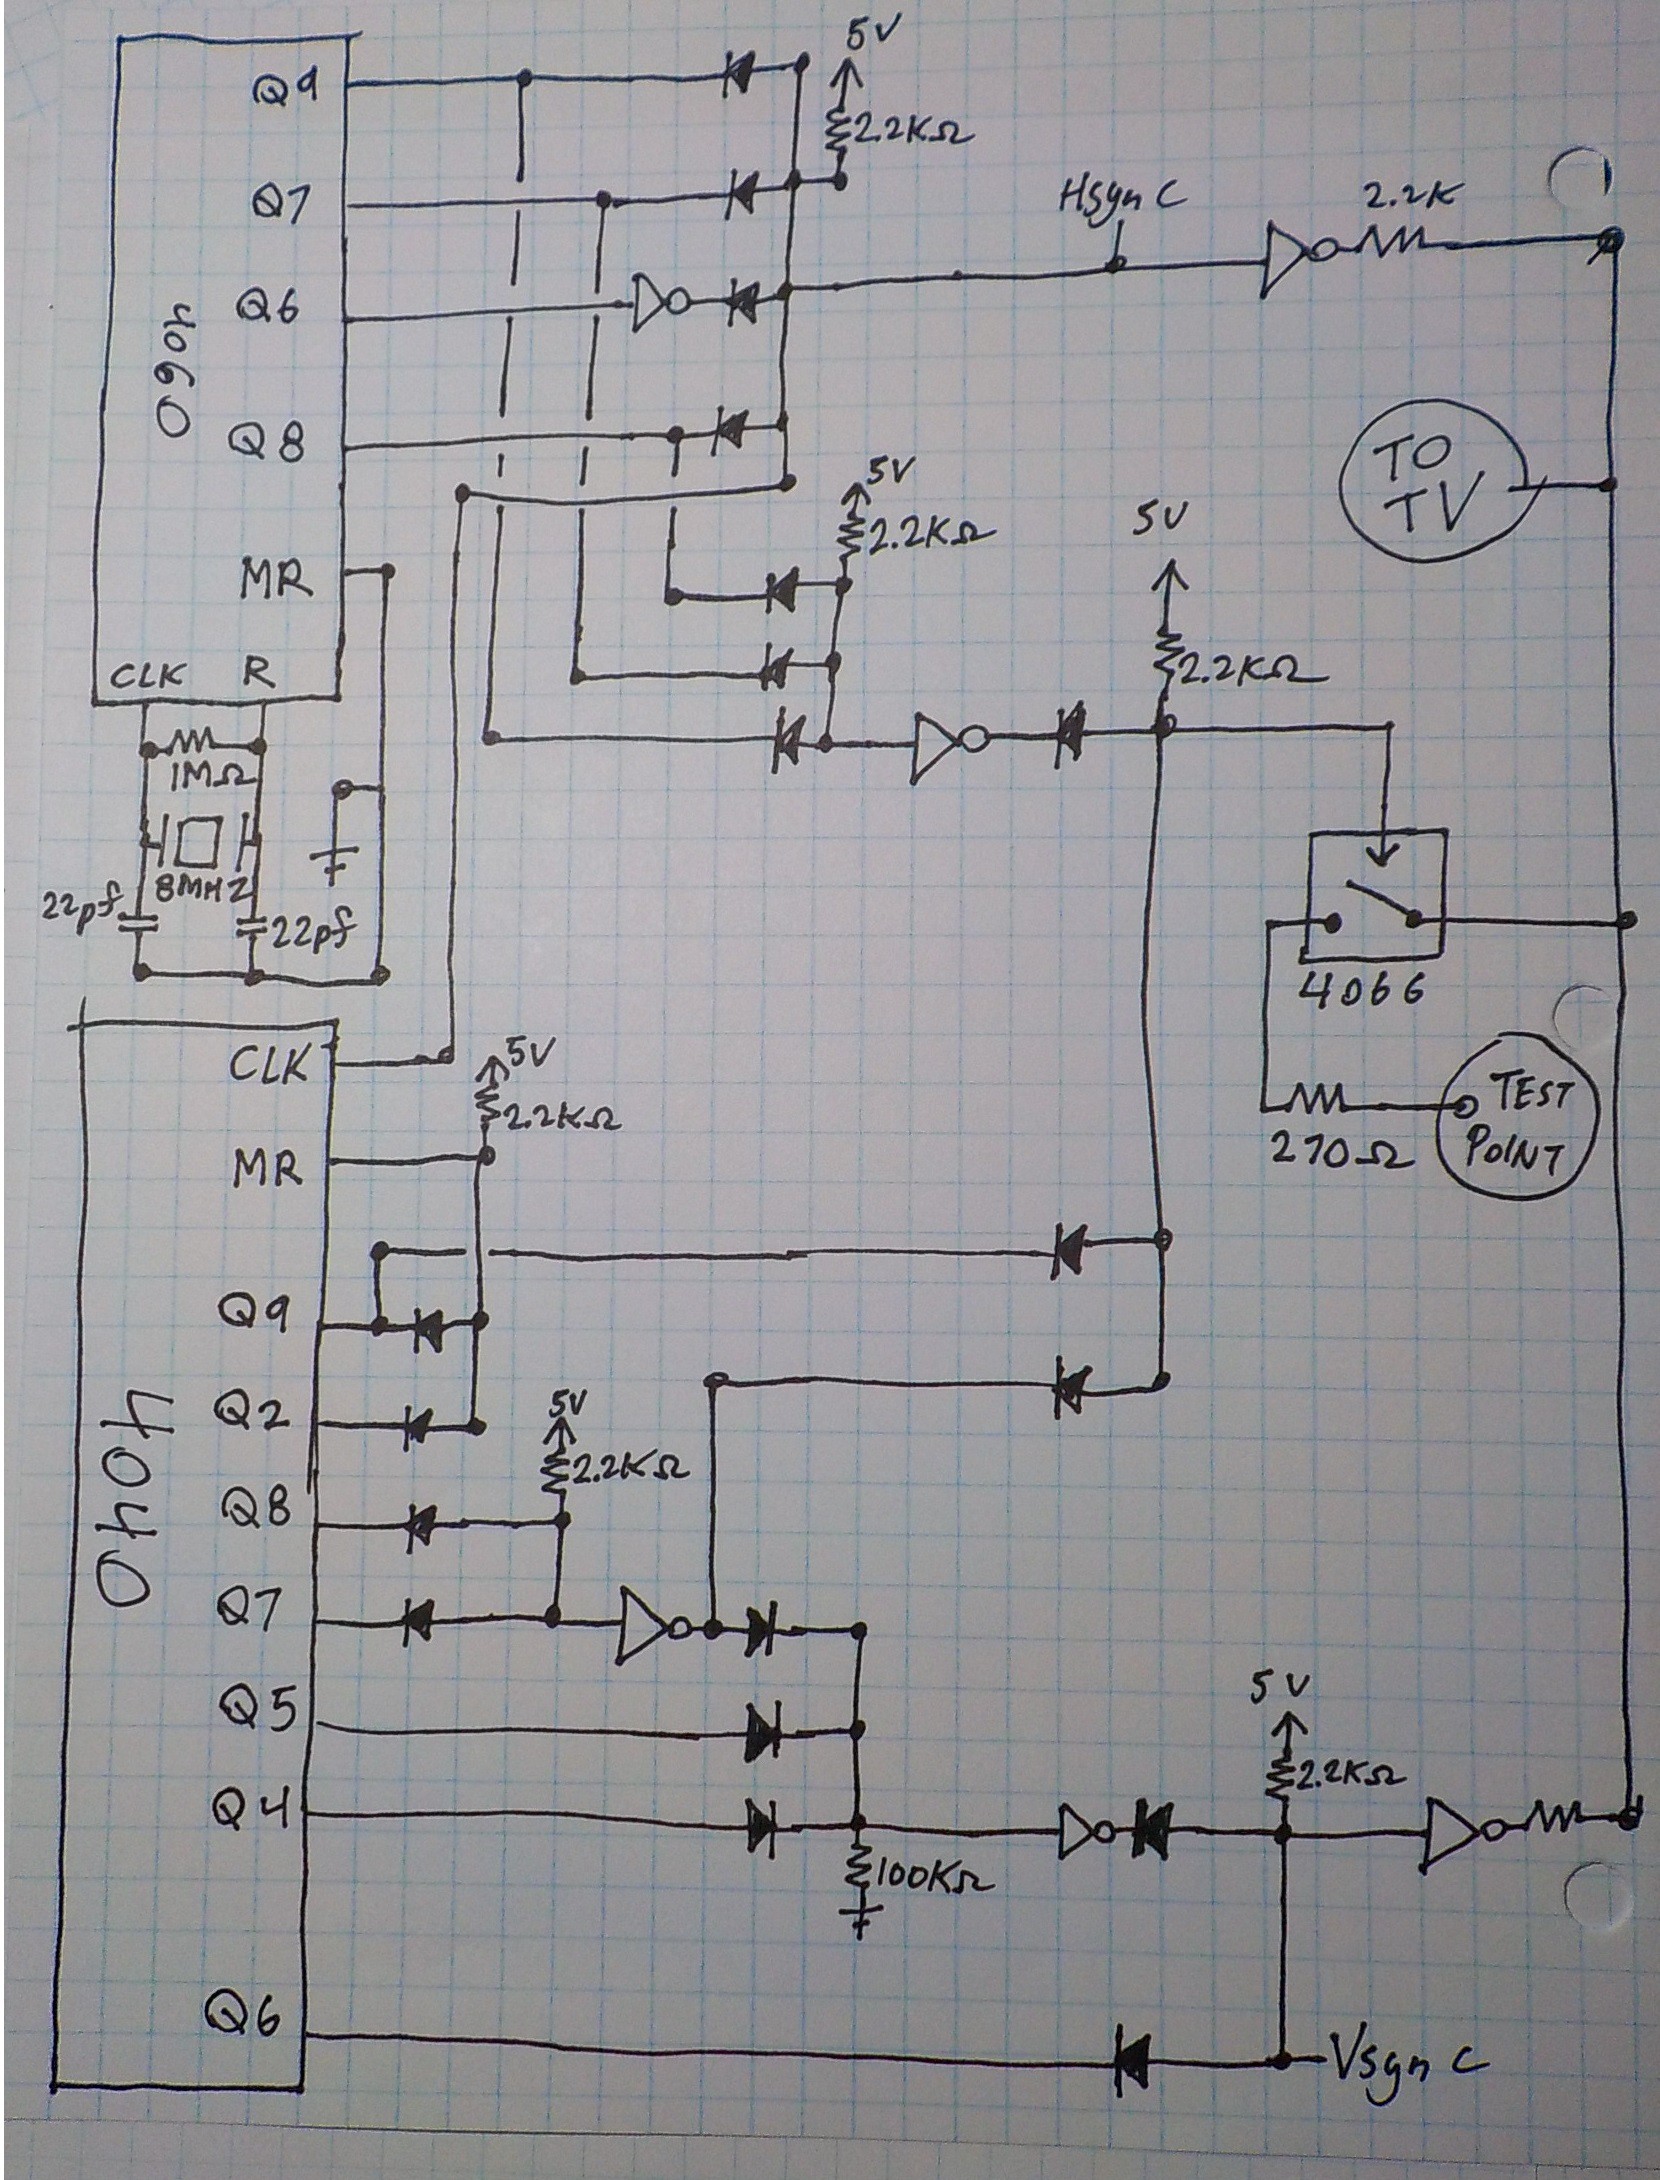 5V
Q9
2.2KΩ
Q7
Hsync
2.2K
Q6
4060
Q8
TO
TV
5V
2.2KΩ
5V
MR
2.2KΩ
CLK R
1MΩ
8MHZ
22pf
22pf
4066
CLK
5V
2.2KΩ
TEST
POINT
270Ω
MR
Q9
4040
Q2
5V
2.2KΩ
Q8
Q7
Q5
5V
2.2KΩ
Q4
100KΩ
Q6
Vsync